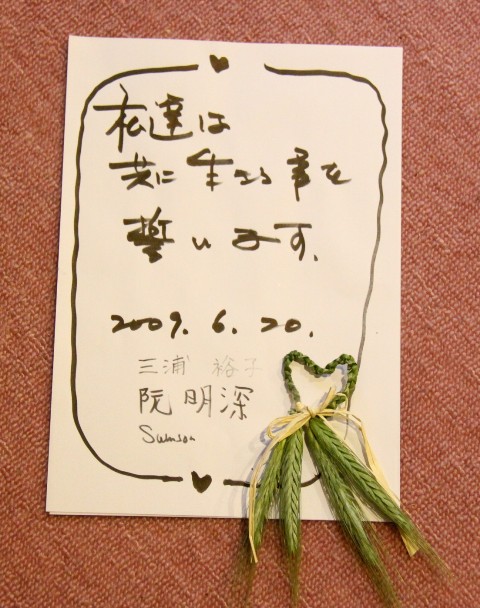 私達は
共に生きる事を
誓います。
2009. 6. 20.
三浦 裕子
阮 明深